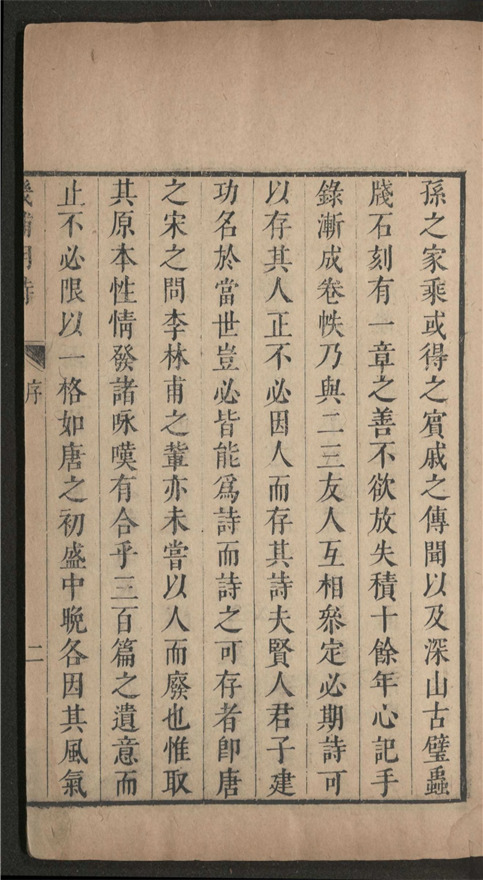 孫之家乘或得之賓戚之傳聞以及深山古壁蟲
牋石刻有一章之善不欲放失積十餘年心記手
錄漸成卷帙乃與二三友人互相叅定必期詩可
以存其人正不必因人而存其詩夫賢人君子建
功名於當世豈必皆能爲詩而詩之可存者卽唐
之宋之問李林甫之輩亦未嘗以人而廢也惟取
其原本性情發諸咏嘆有合乎三百篇之遺意而
止不必限以一格如唐之初盛中晚各因其風氣
序 二